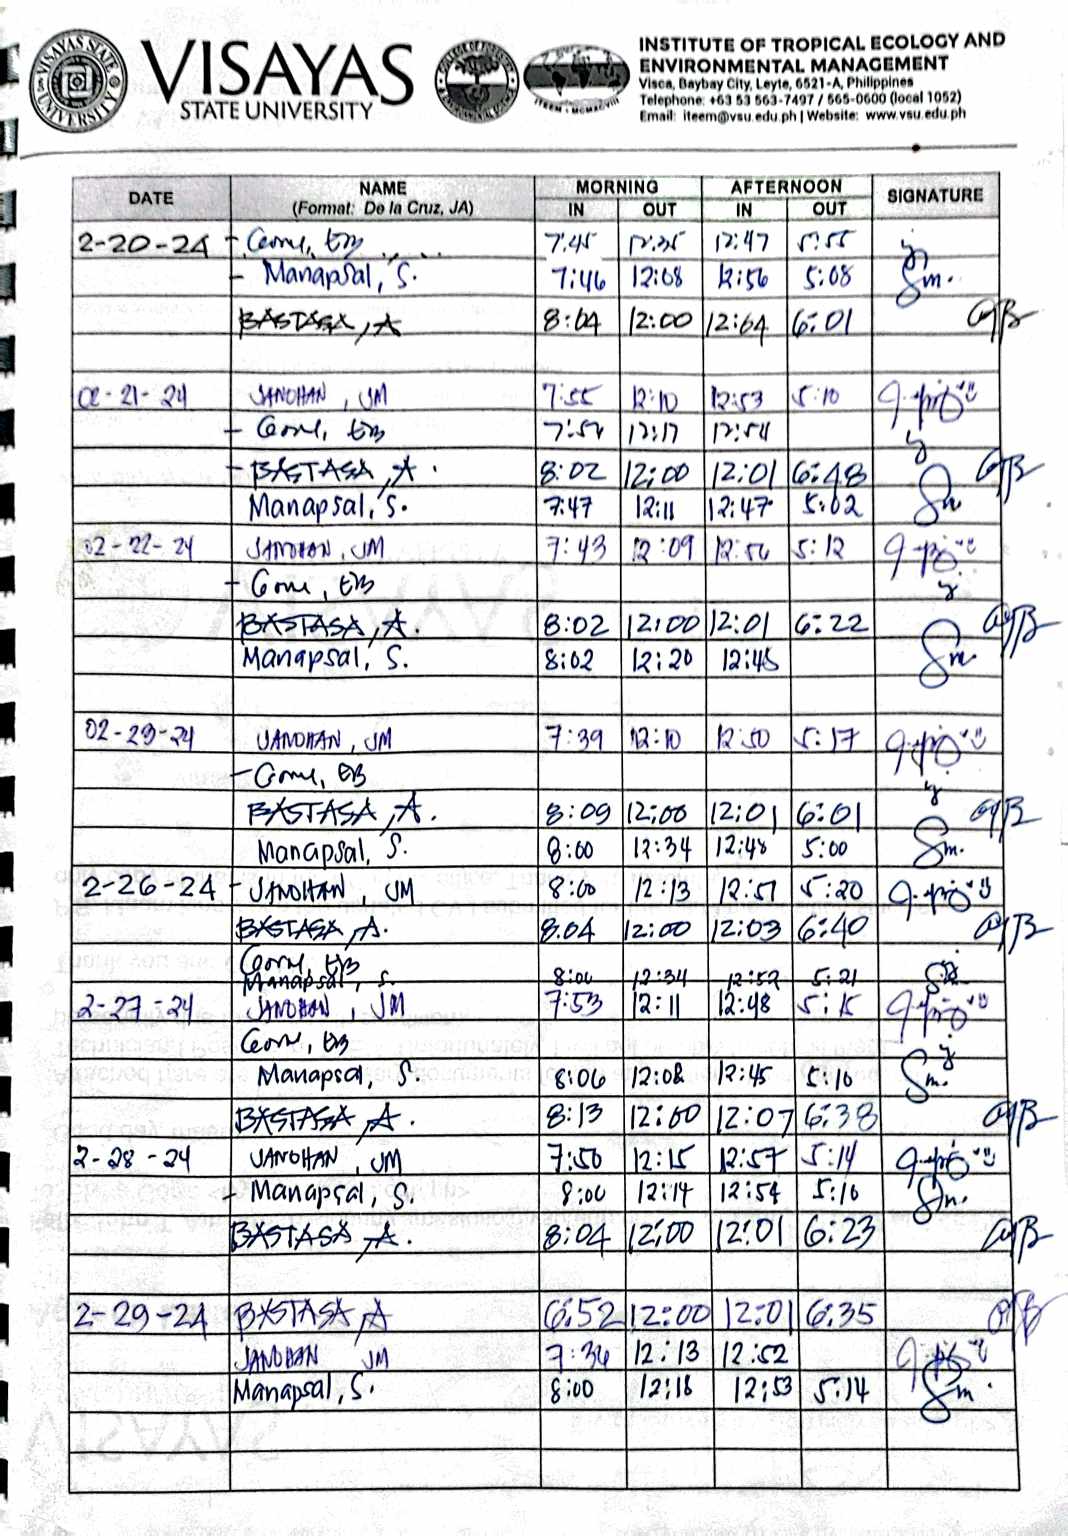 VISAYAS
STATE UNIVERSITY
INSTITUTE OF TROPICAL ECOLOGY AND
ENVIRONMENTAL MANAGEMENT
Visca, Baybay City, Leyte, 6521-A, Philippines
Telephone: +63 53 563-7497 / 565-0600 (local 1052)
Email: iteem@vsu.edu.ph | Website: www.vsu.edu.ph
DATE NAME (Format: De la Cruz, JA) MORNING AFTERNOON SIGNATURE
IN OUT IN OUT
2-20-24 7:45 12:47 5:55
- Manapsal, S. 7:46 12:08 12:56 5:08 Sm.
BASTASA, A 8:04 12:00 12:04 6:01
02-21-24 JANOHAN, JM 7:55 12:10 12:53 5:10
12:17 12:54
- BASTASA, A. 8:02 12:00 12:01 6:48
Manapsal, S. 7:47 12:11 12:47 5:02 Sm
02-22-24 JANOHAN, JM 7:43 12:09 12:56 5:12
BASTASA, A. 8:02 12:00 12:01 6:22
Manapsal, S. 8:02 12:20 12:45 Sm.
02-23-24 JANOHAN, JM 7:39 12:10 12:50 5:17
BASTASA, A. 8:09 12:00 12:01 6:01
Manapsal, S. 8:00 12:34 12:48 5:00 Sm.
2-26-24 - JANOHAN JM 8:00 12:13 12:51 5:20
BASTASA, A. 8:04 12:00 12:03 6:40
Manapsal, S. 12:34 12:52 5:21
2-27-24 JANOHAN, JM 7:53 12:11 12:48 5:15
Manapsal, S. 8:06 12:08 12:45 5:10 Sm.
BASTASA, A. 8:13 12:00 12:07 6:38
2-28-24 JANOHAN, JM 7:50 12:15 12:57 5:14
- Manapsal, S. 8:00 12:14 12:54 5:10 Sm.
BASTASA, A. 8:04 12:00 12:01 6:23
2-29-24 BASTASA, A 6:52 12:00 12:01 6:35
JANOHAN JM 7:36 12:13 12:52
Manapsal, S. 8:00 12:18 12:53 5:14 Sm.